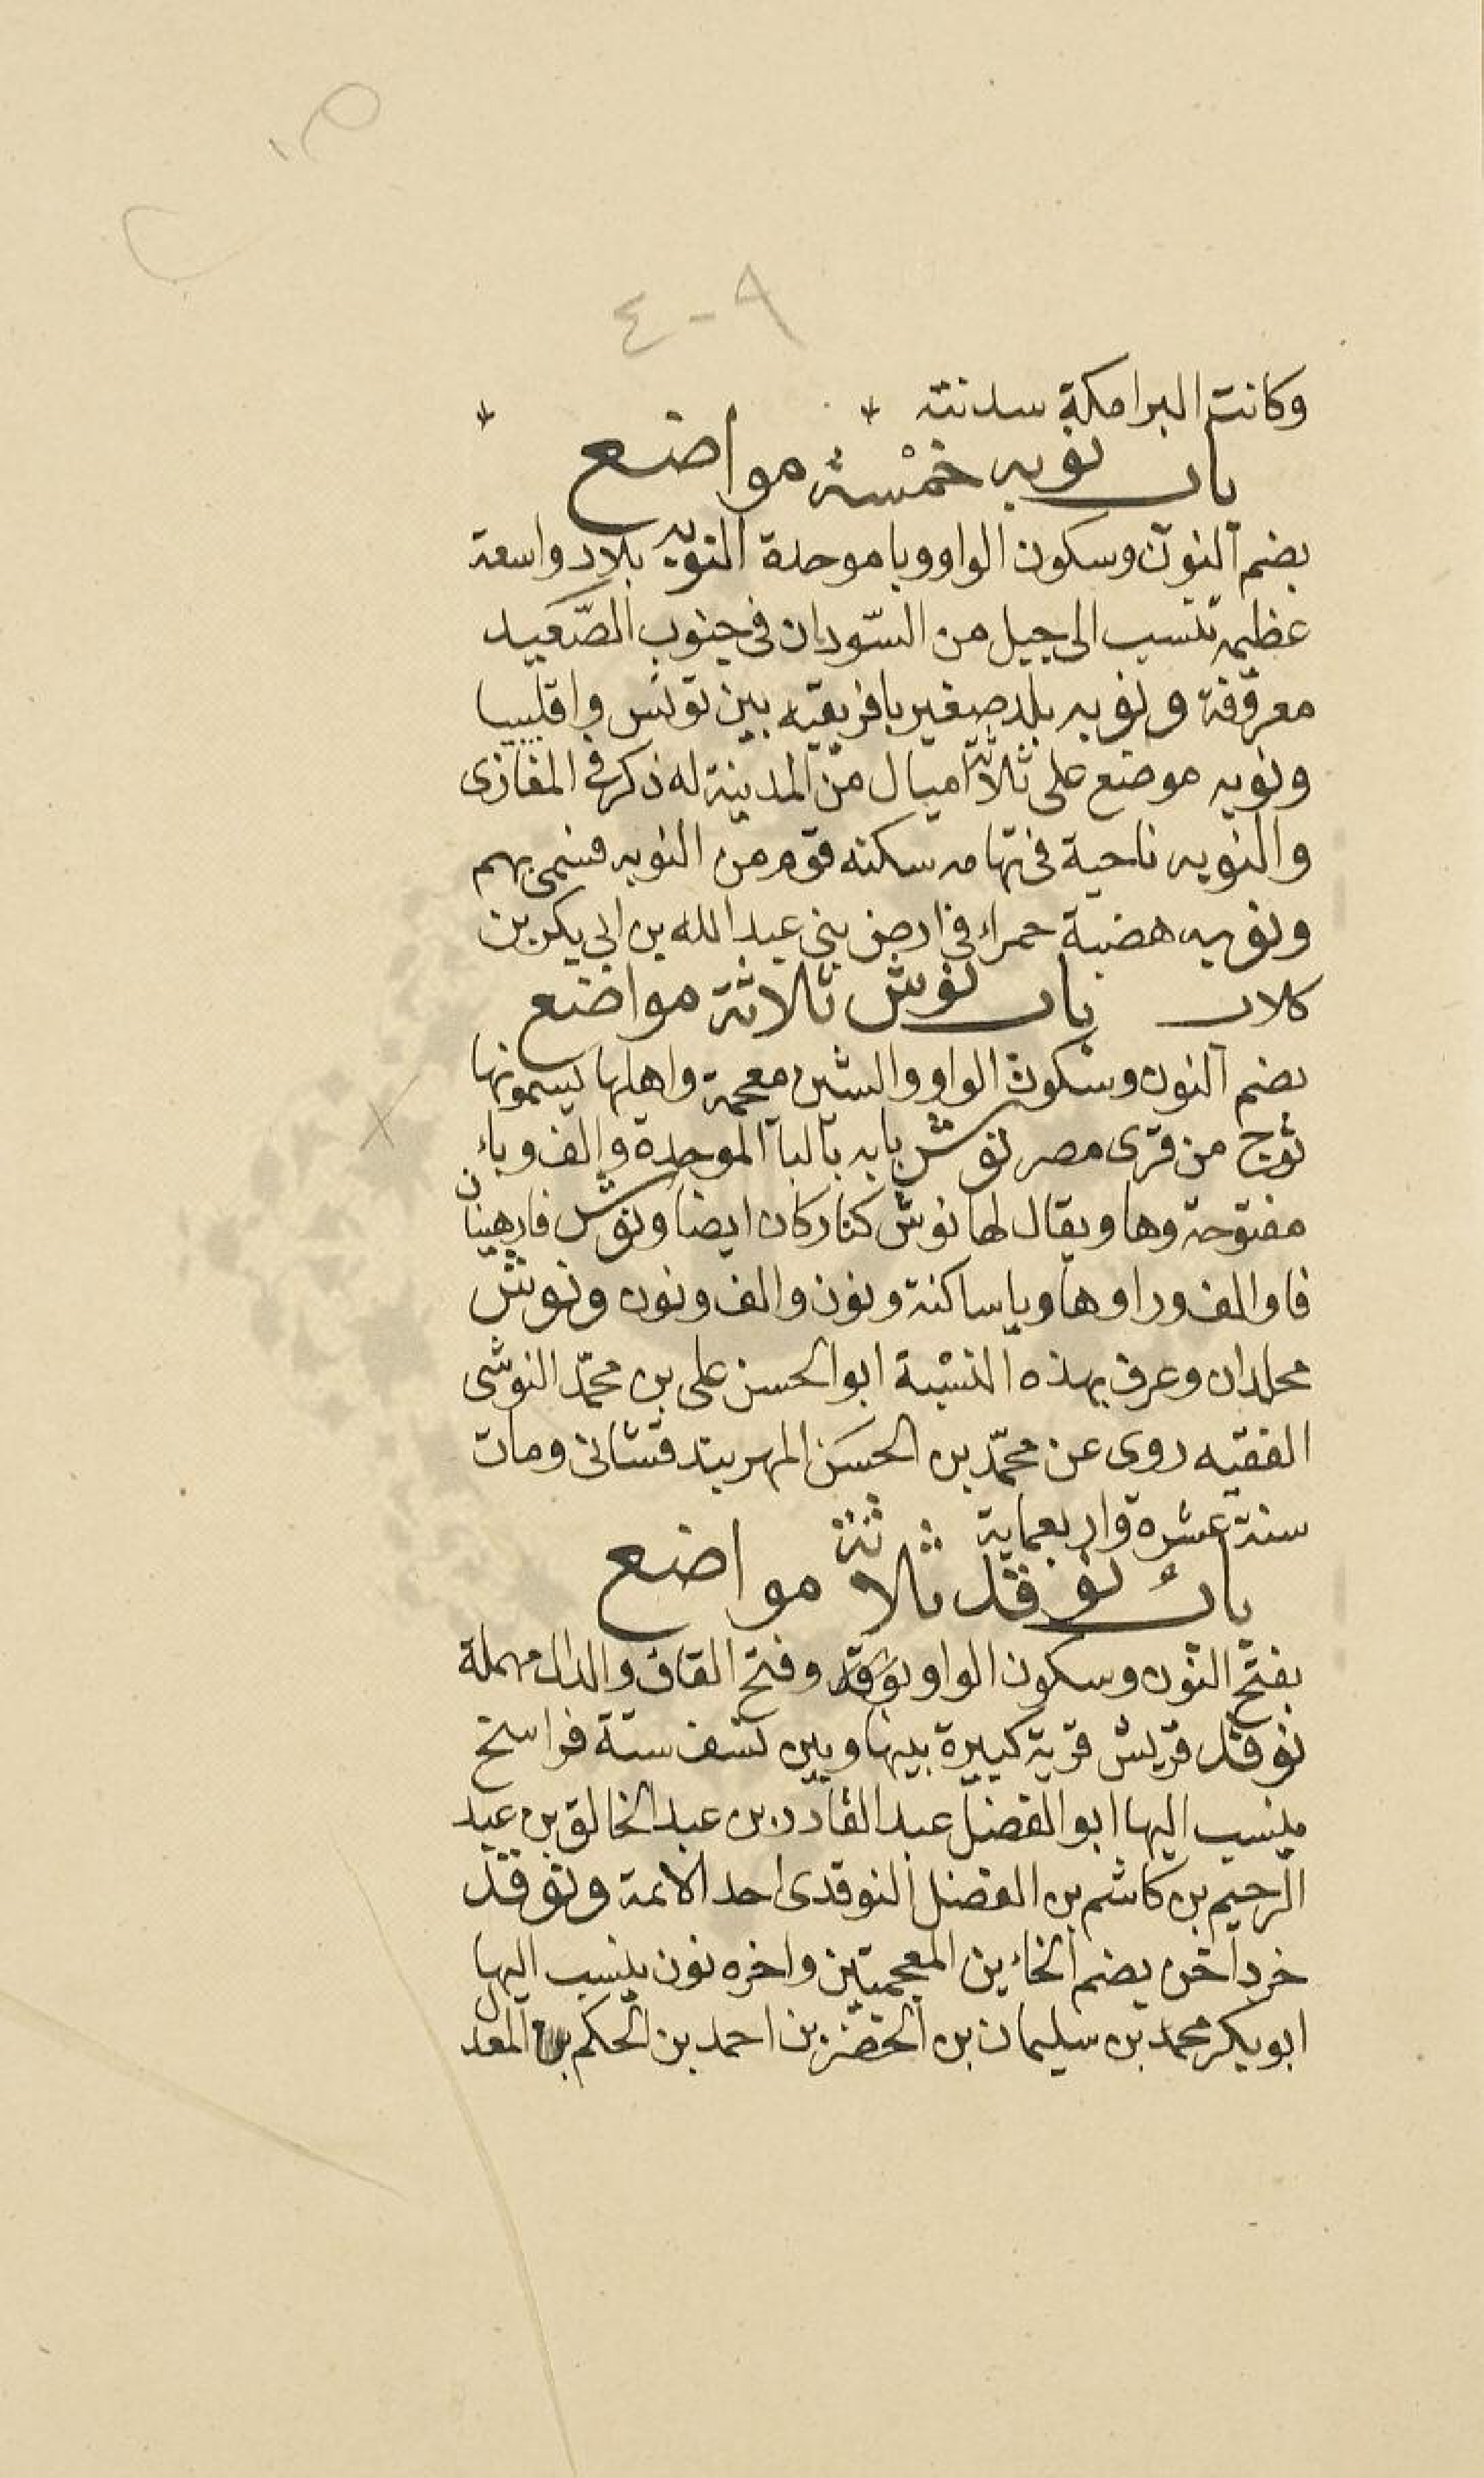 ٤٠٩
وكانت البرامكة سدنته
باب نوبه خمسة مواضع
بضم النون وسكون الواو وبا موحدة النوبه بلاد واسعة
عظيمه تنسب الى جيل من السّودان فى جنوب الصّعيد
معروفة ونوبه بلد صغير بافريقيه بين تونس واقليبيا
ونوبه موضع على ثلاثة اميال من المدينة له ذكر فى المغازى
والنوبه ناحية فى تهامه سكنه قوم من النوبه فسمى بهم
ونوبه هضبة حمراء فى ارض بنى عبد الله بن ابى بكر بن
كلاب باب نوش ثلاثة مواضع
بضم النون وسكون الواو والشين معجمة واهلها يسمونها
نوج من قرى مصر نوش بابه بالبا الموحدة والف وباء
مفتوحة وها ويقال لها نوش كناركان ايضا ونوش فارهينان
فا والف ورا وها ويا ساكنة ونون والف ونون ونوش
محلدان وعرف بهذه النسبة ابو الحسن على بن محمّد النوشى
الفقيه روى عن محمّد بن الحسَن المهربندقشانى ومات
سنة عشرة واربعماية
باب نوقد ثلاثة مواضع
بفتح النون وسكون الواو نوقد وفتح القاف والدال مهملة
نوقد قريش قرية كبيرة بينها وبين نسف ستة فراسخ
ينسب اليها ابو الفضل عبد القادر بن عبد الخالق بن عبد
الرحيم بن كاشم بن الفضل النوقدى احد الائمة ونوقد
خرداخن بضم الخاءين المعجمتين واخره نون ينسب اليها
ابو بكر محمد بن سليمان بن الخضر بن احمد بن الحكم المعد